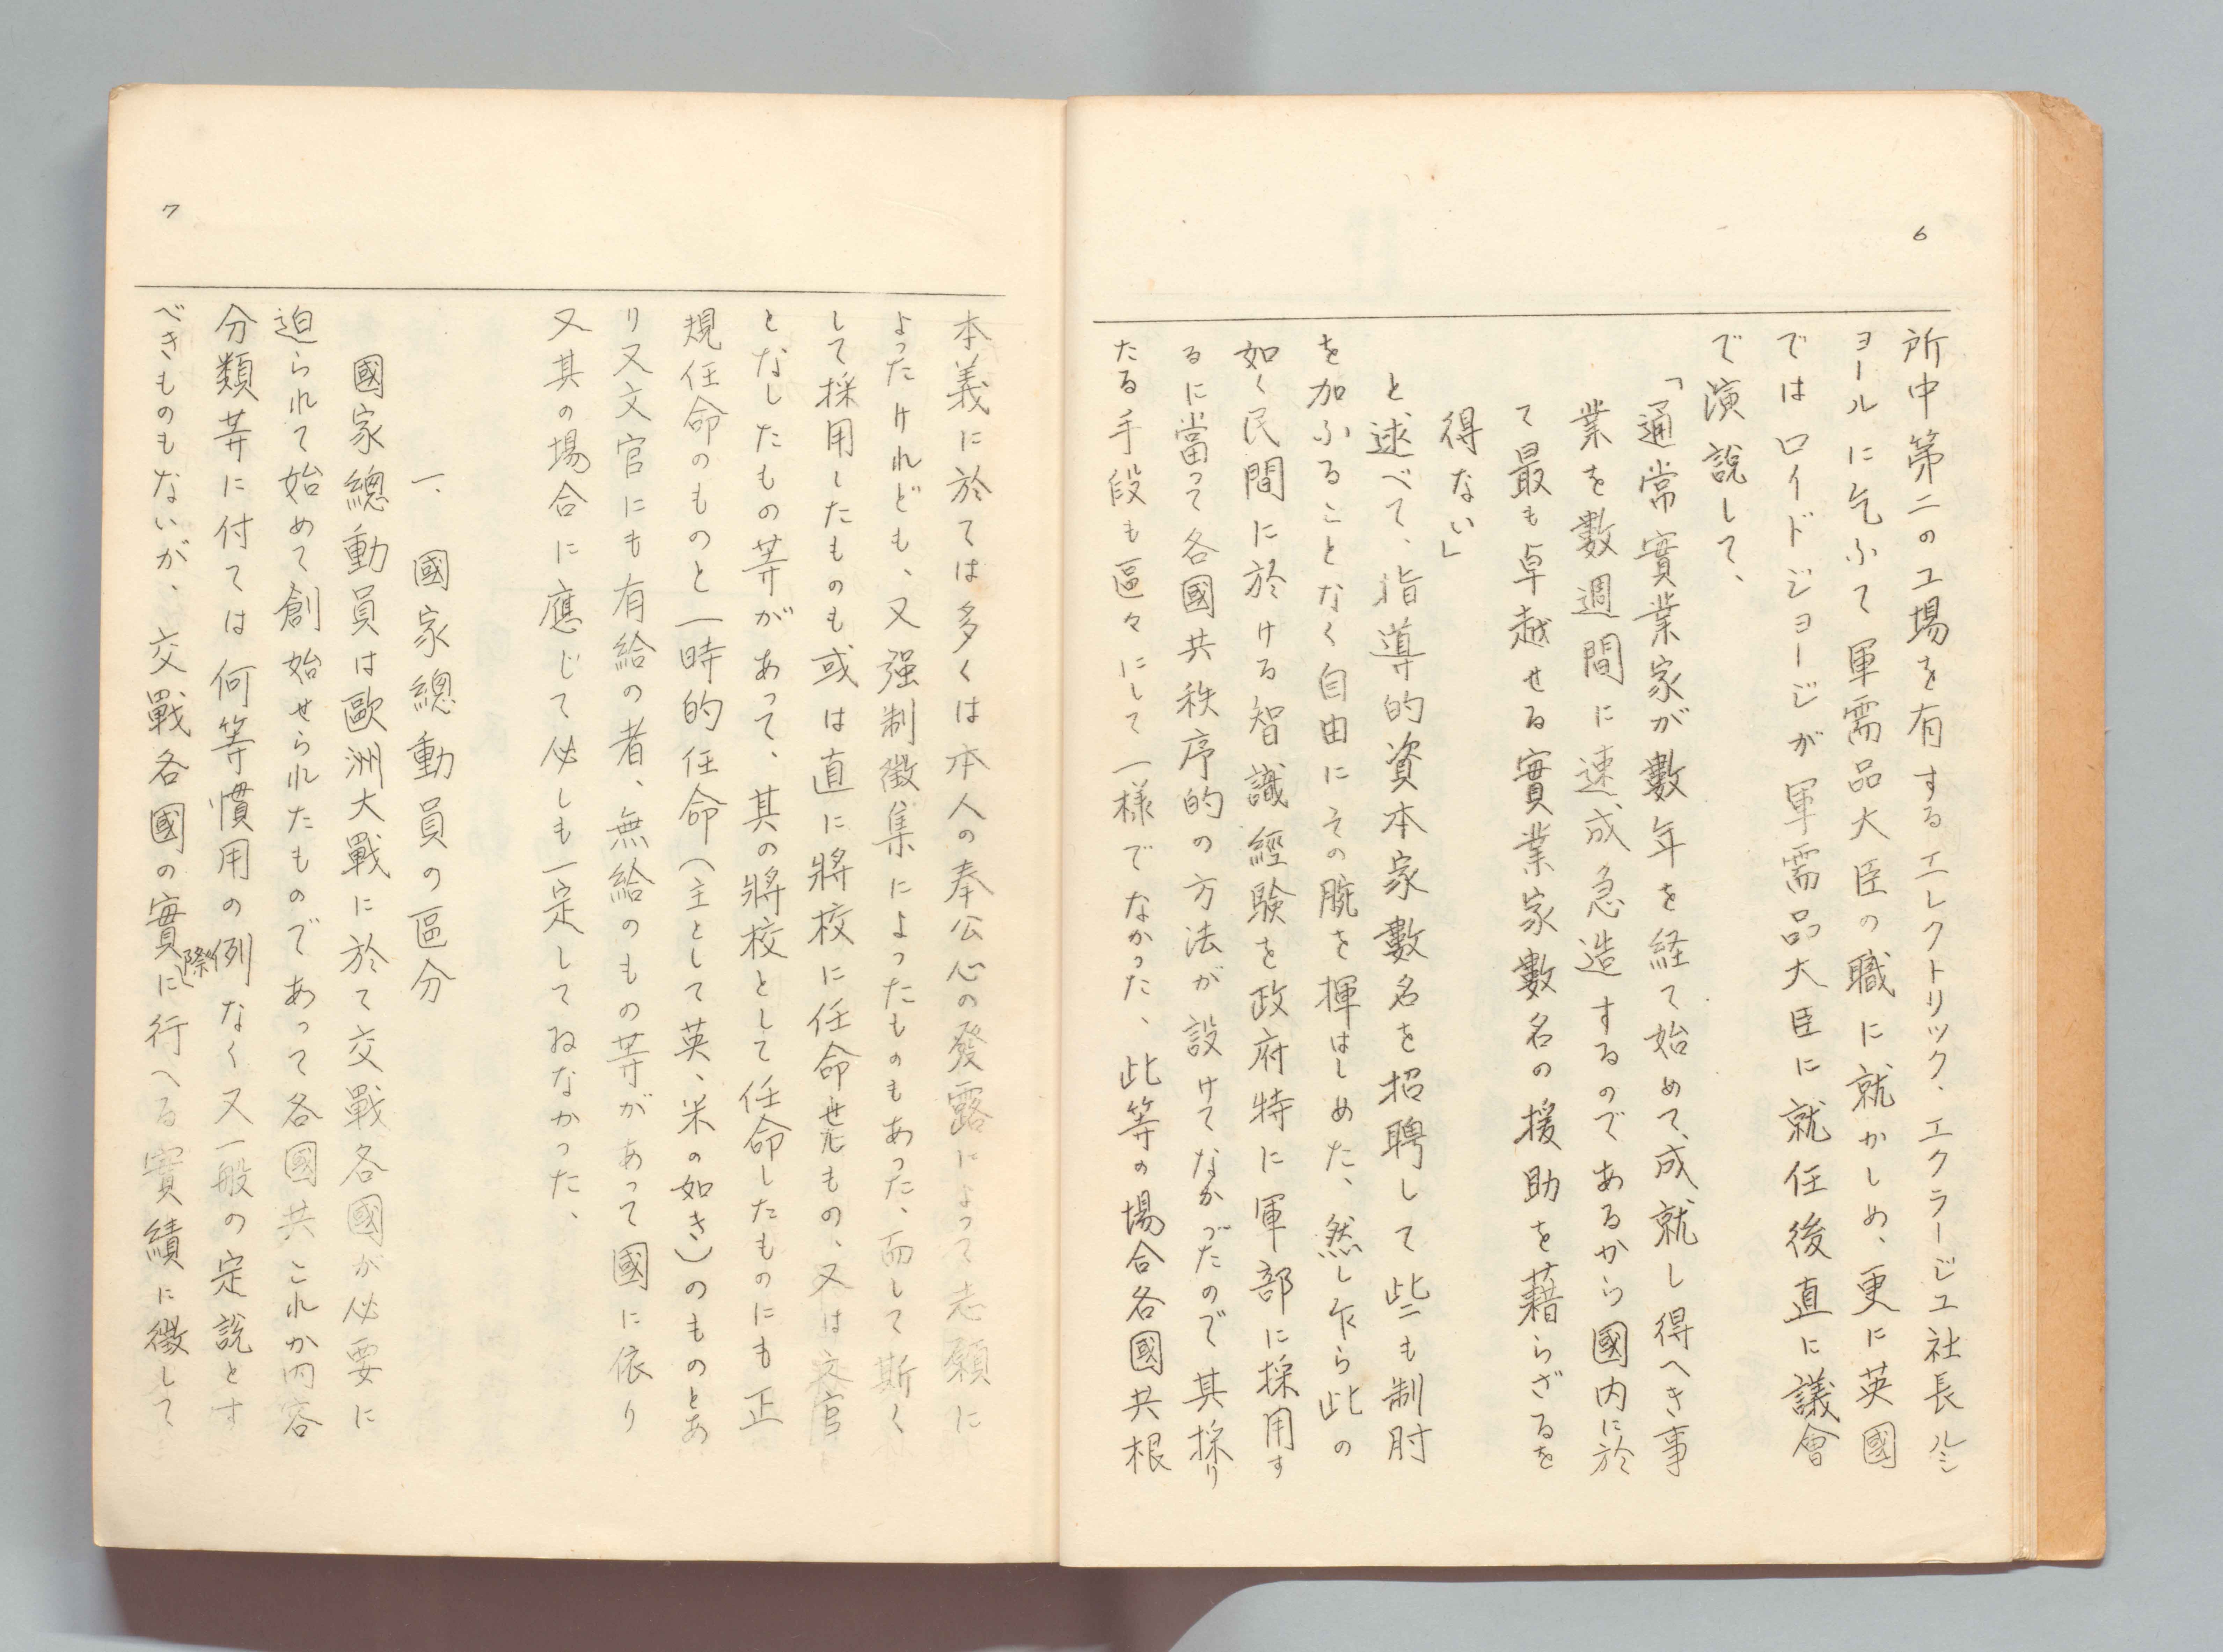 6
所中第二の工場を有するエレクトリック、エクラージュ社長ルシ
ヨールに乞ふて軍需品大臣の職に就かしめ、更に英國
ではロイドジョージが軍需品大臣に就任後直に議會
で演説して、
「通常實業家が數年を経て始めて、成就し得へき事
業を數週間に速成急造するのであるから國内に於
て最も卓越せる實業家數名の援助を藉らざるを
得ない」
と述べて、指導的資本家數名を招聘して些も制肘
を加ふることなく自由にその腕を揮はしめた、然し乍ら此の
如く民間に於ける智識經驗を政府特に軍部に採用す
るに當って各國共秩序的の方法が設けてなかったので其採り
たる手段も區々にして一様でなかった、此等の場合各國共根
7
本義に於ては多くは本人の奉公心の發露によって志願に
よったけれども、又强制徴集によったものもあった、而して斯く
して採用したものも或は直に將校に任命せるもの、又は文官
となしたもの等があって、其の將校として任命したものにも正
規任命のものと一時的任命(主として英、米の如き)のものとあ
り又文官にも有給の者、無給のもの等があって國に依り
又其の場合に應じて必しも一定してゐなかった、
一、國家總動員の區分
國家總動員は歐洲大戰に於て交戰各國が必要に
迫られて始めて創始せられたものであって各國共これか内容
分類等に付ては何等慣用の例なく又一般の定説とす
べきものもないが、交戰各國の實際に行へる實績に徴して